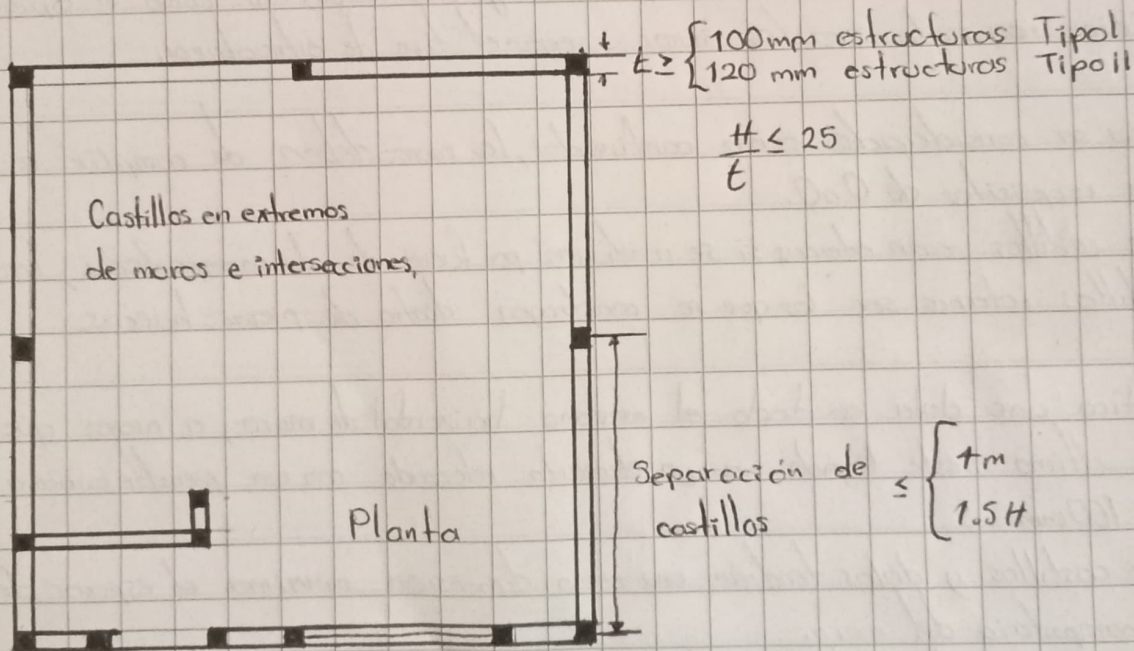 t ≥ { 100mm estructuras Tipo I
120 mm estructuras Tipo II
H/t ≤ 25
Castillos en extremos
de muros e intersecciones,
Separación de castillos ≤ { 4m
1.5H
Planta